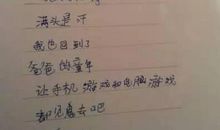 满头是汗
我也回到了
爸爸的童年
让手机游戏和电脑游戏
都休息去吧